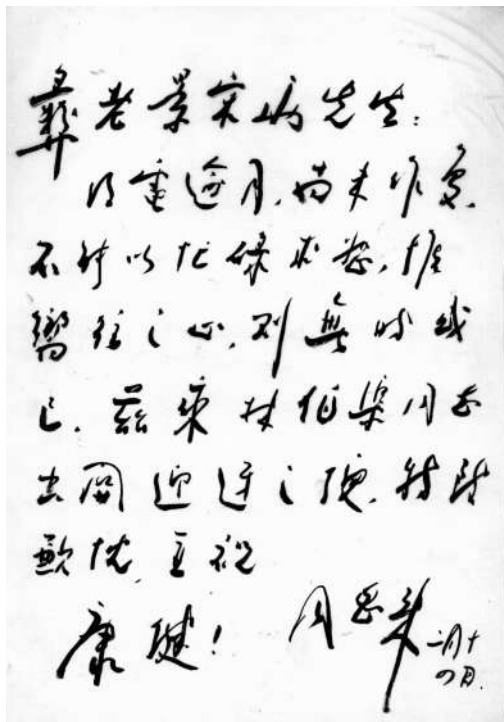 彝老景宋两先生：
得電逾月，尚未作复，
不以忙碌求恕，惟
嚮往之心，则無時或
已。兹乘林伯渠同志
出関迎迓之便，特致
歉忱，并祝
康健！
周恩来
二月十
四日.